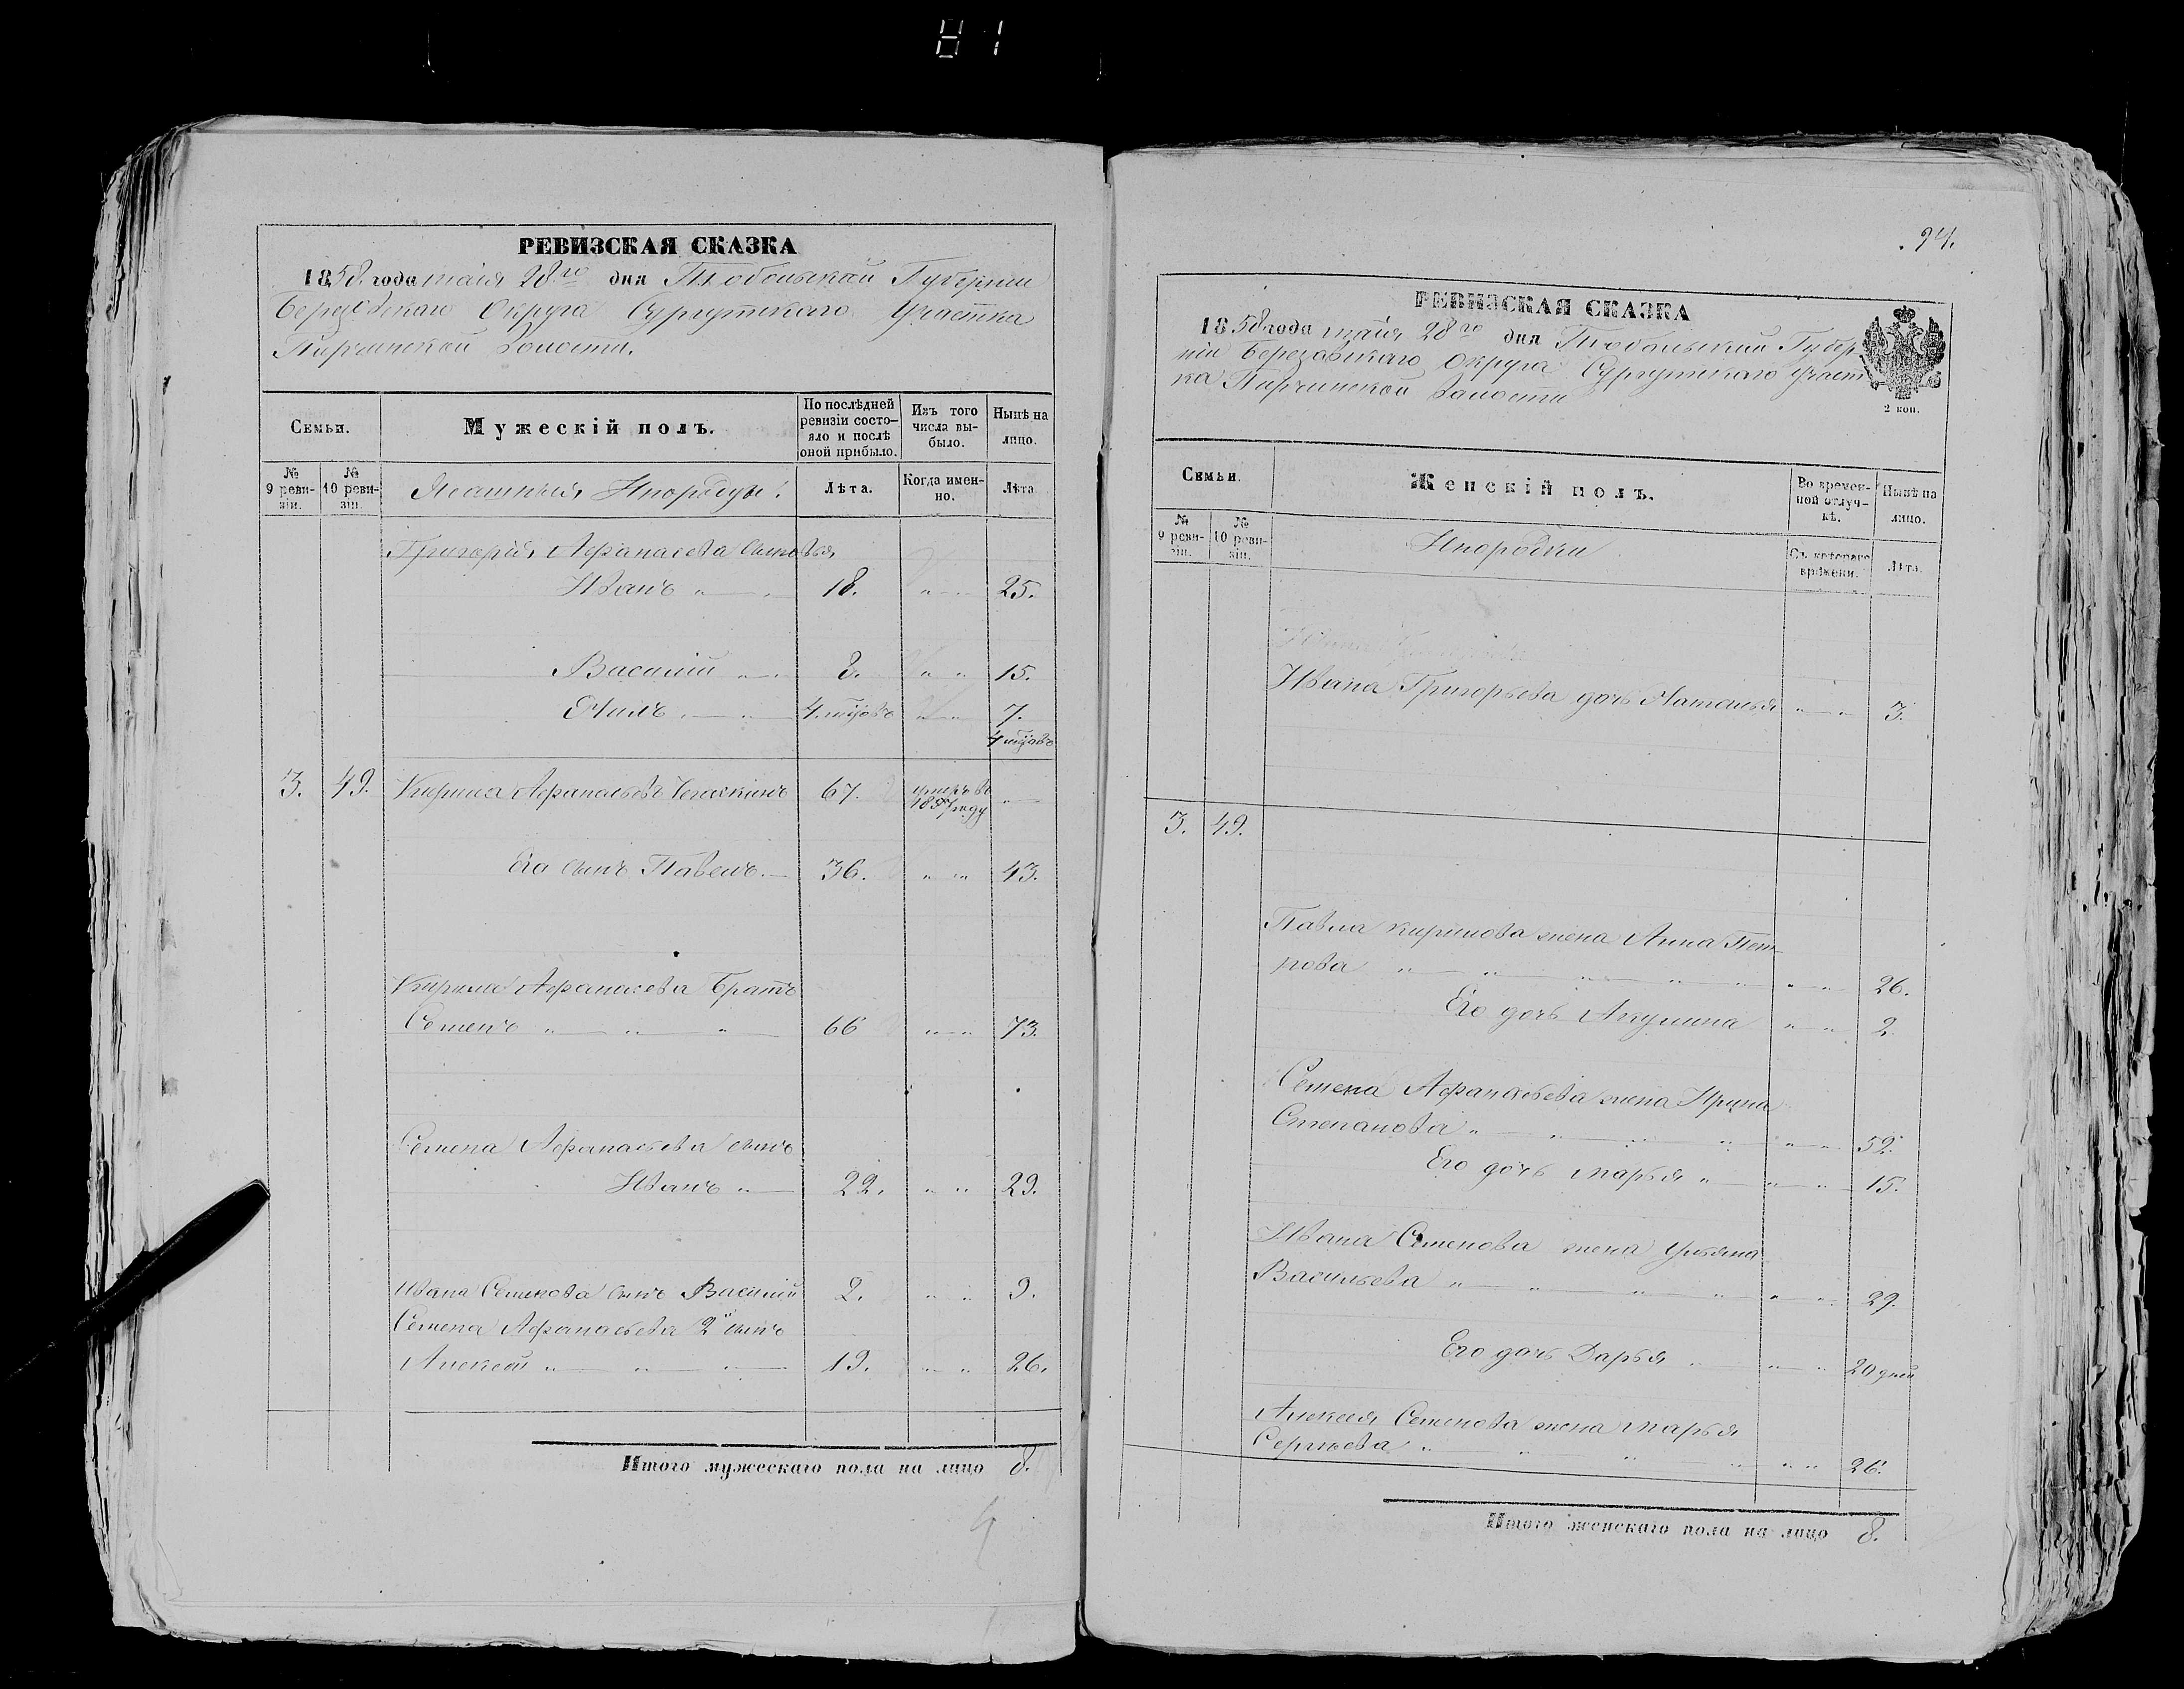 81
РЕВИЗСКАЯ СКАЗКА
1858 года мая 28го дня Тобольской Губернии
Березовскаго Округа Сургутскаго Участка
Пирчинской Волости.
Семьи.
Мужескій полъ.
По послѣдней ревизіи состо-яло и послѣ оной прибыло.
Изъ того числа вы-было.
Нынѣ на лицо.
№ 9 реви-зіи.
№ 10 реви-зіи.
Ясашныя Инородцы.
Лѣта.
Когда имен-но.
Лѣта
Григорія Афанасьева сыновья
Иванъ 18. " " 25.
Василій 8. " " 15.
4. мѣсяцовъ " " 7.
4 мѣсяцовъ
3. 49. Кирила Афанасьевъ 67. умеръ въ
1857 году
Его сынъ Павелъ. 36. " " 43.
Кирила Афанасьева братъ
Семенъ " " " 66 " " 73.
Семена Афанасьева сынъ
Иванъ " 22. " " 29.
Ивана Семенова сынъ Василій 2. " " 9.
Семена Афанасьева 2й сынъ
Алексей " " " 19. " " 26.
Итого мужескаго пола на лицо 8.
94.
РЕВИЗСКАЯ СКАЗКА
1858 года мая 28го дня Тобольской Губер
ніи Березовскаго Округа Сургутскаго Участ
ка Пирчинской Волости
2 коп.
Семьи.
Женскій полъ.
Во времен-ной отлуч-кѣ.
Нынѣ на лицо.
№ 9 реви-зіи.
№ 10 реви-зіи.
Инородки
Съ котораго времени.
Лѣта.
Ивана Григорьева дочь Наталья " " 3.
3. 49.
Павла Кирилова жена Анна Пет-
рова " " " " " " " 26.
Его дочь Акулина " " 2.
Семена Афанасьева жена Ирина
Степанова " " " " " " 52.
Его дочь Марья " " " 15.
Ивана Семенова жена Ульяна
Васильева " " " " " " 29.
Его дочь Дарья " " " 20 дней
Алексея Семенова жена Марья
Сергѣева " " " " " " 26.
Итого женскаго пола на лицо 8.